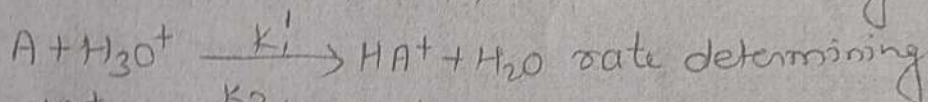 A + H₃O⁺ —K₁'→ HA⁺ + H₂O rate determining
K₂